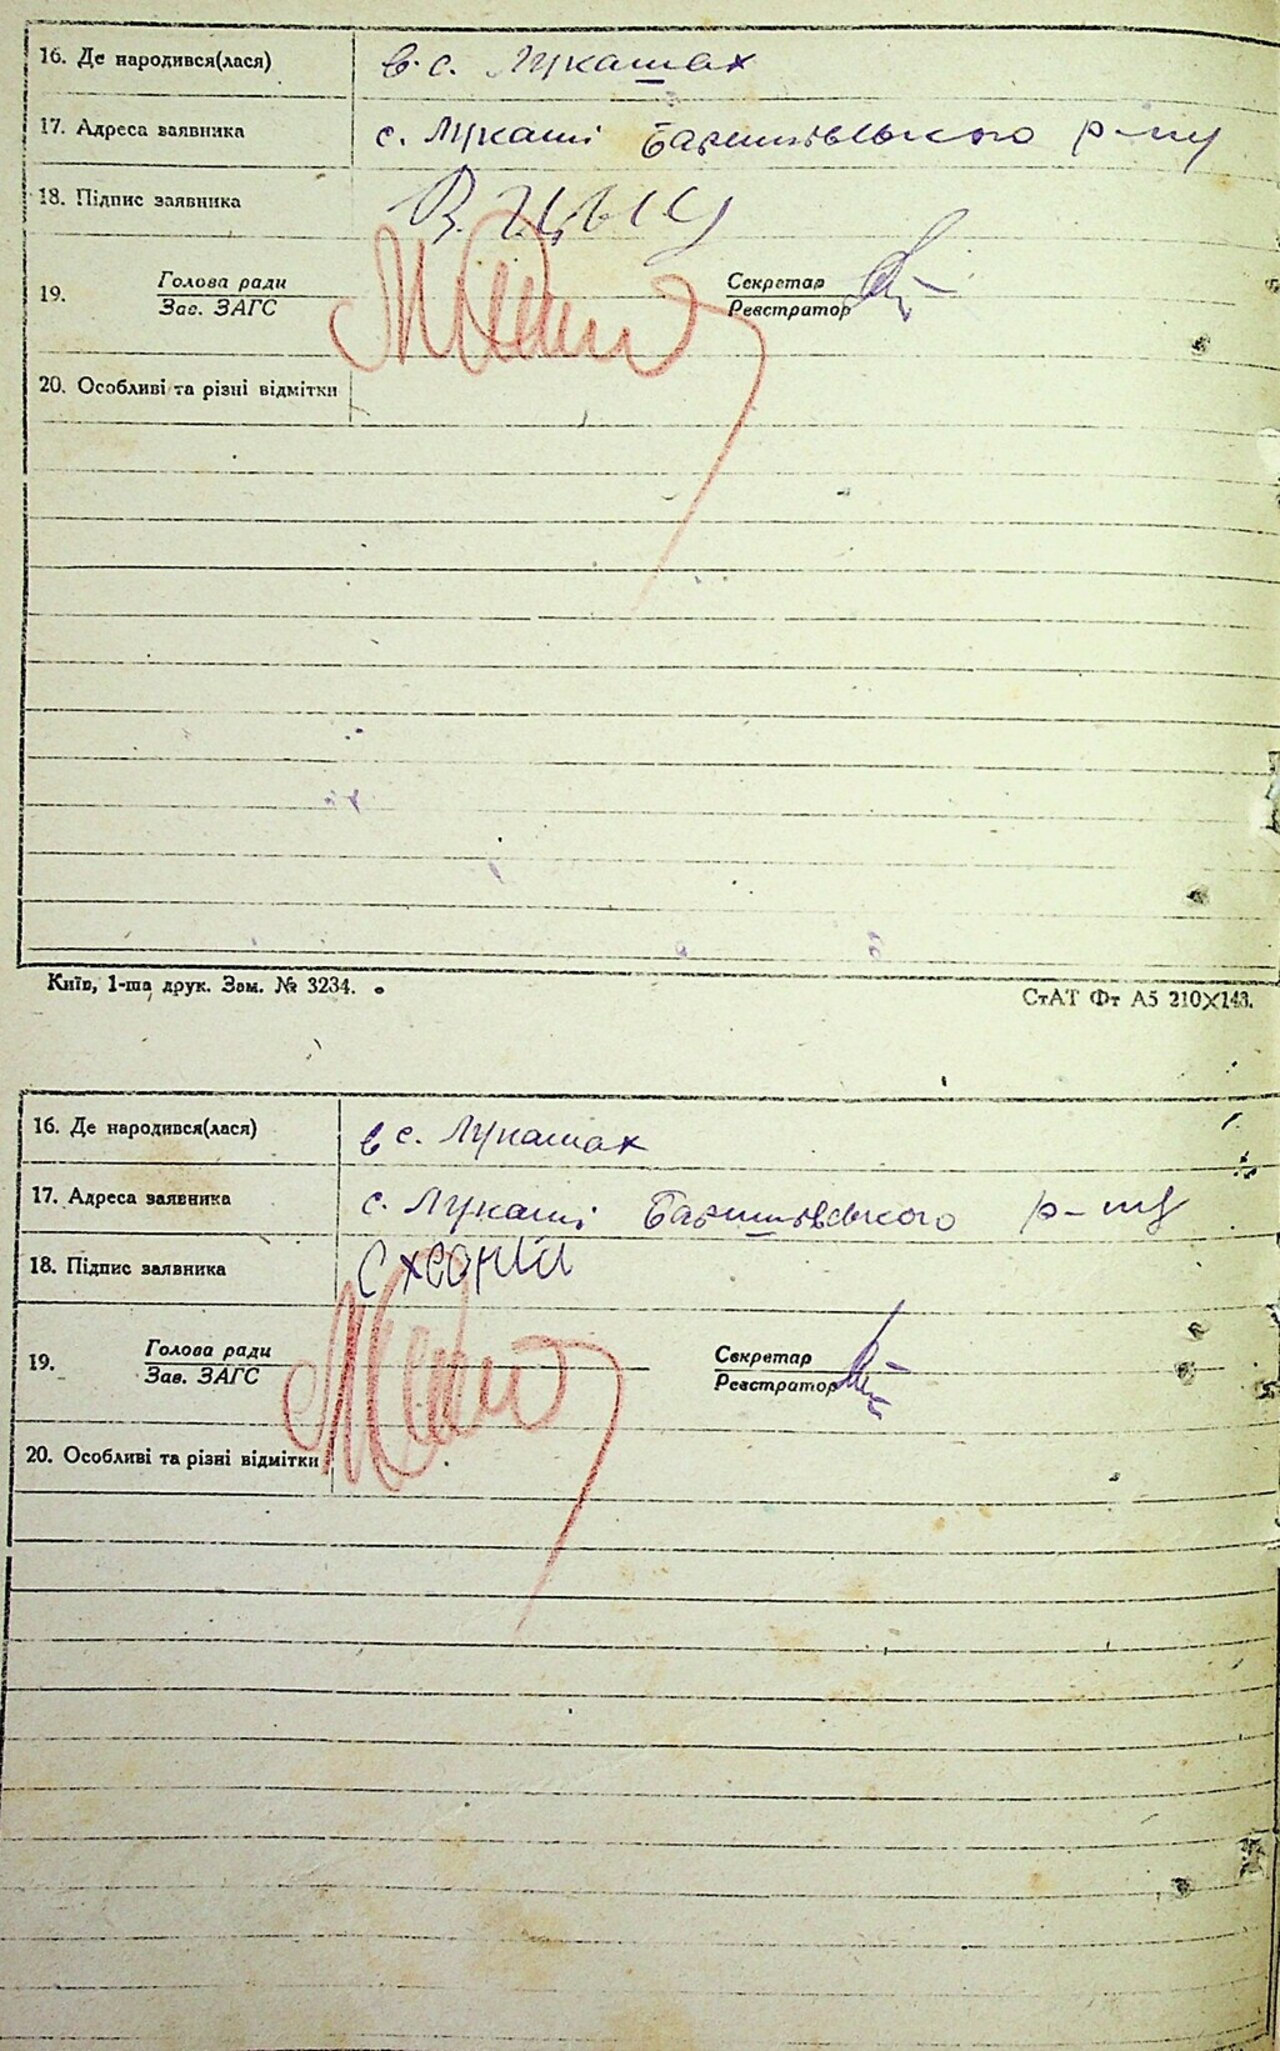 16. Де народився(лася) в с. Лукашах
17. Адреса заявника с. Лукаші Баришівського р-ну
18. Підпис заявника
19. Голова ради Секретар
Зав. ЗАГС Реєстратор
20. Особливі та різні відмітки
Київ, 1-ша друк. Зам. № 3234. СтАТ Фт А5 210×148.
16. Де народився(лася) в с. Лукашах
17. Адреса заявника с. Лукаші Баришівського р-ну
18. Підпис заявника
19. Голова ради Секретар
Зав. ЗАГС Реєстратор
20. Особливі та різні відмітки